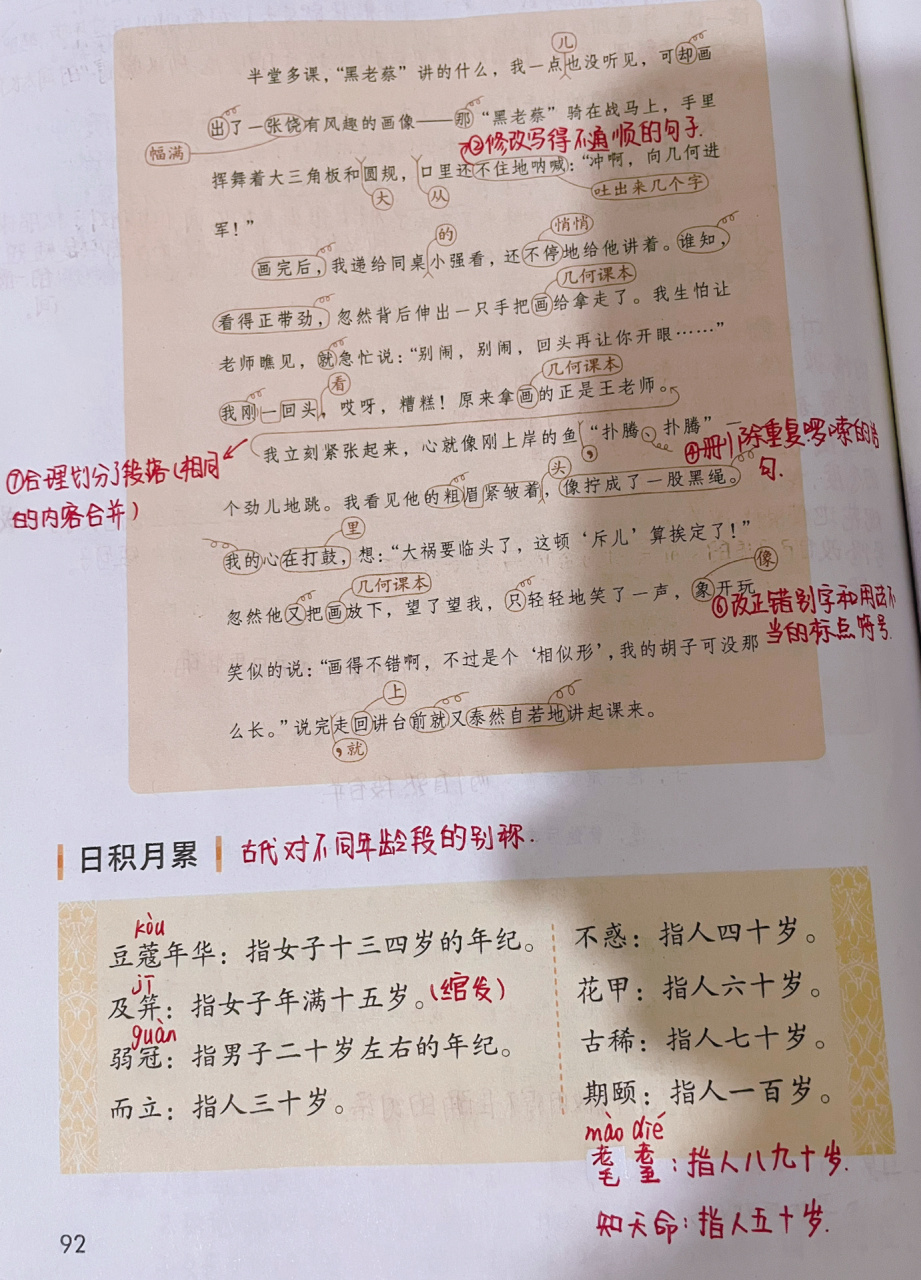 儿
半堂多课，“黑老蔡”讲的什么，我一点也没听见，可却画
出了一张饶有风趣的画像——那“黑老蔡”骑在战马上，手里
幅满
②修改写得不通顺的句子.
挥舞着大三角板和圆规，口里还不住地呐喊：“冲啊，向几何进
大 从 吐出来几个字
军！”
的 悄悄
画完后，我递给同桌小强看，还不停地给他讲着。谁知，
几何课本
看得正带劲，忽然背后伸出一只手把画给拿走了。我生怕让
老师瞧见，就急忙说：“别闹，别闹，回头再让你开眼……”
看 几何课本
我刚一回头，哎呀，糟糕！原来拿画的正是王老师。
我立刻紧张起来，心就像刚上岸的鱼“扑腾、扑腾”一
，
④删除重复啰嗦的语
句.
⑦合理划分了段落(相同
的内容合并)
头
个劲儿地跳。我看见他的粗眉紧皱着，像拧成了一股黑绳。
里
我的心在打鼓，想：“大祸要临头了，这顿‘斥儿’算挨定了！”
几何课本 像
忽然他又把画放下，望了望我，只轻轻地笑了一声，象开玩
⑥改正错别字和用法不
当的标点符号.
笑似的说：“画得不错啊，不过是个‘相似形’，我的胡子可没那
上
么长。”说完走回讲台前就又泰然自若地讲起课来。
，就
日积月累 古代对不同年龄段的别称.
kòu
豆蔻年华：指女子十三四岁的年纪。
jī
及笄：指女子年满十五岁。(绾发)
guàn
弱冠：指男子二十岁左右的年纪。
而立：指人三十岁。
不惑：指人四十岁。
花甲：指人六十岁。
古稀：指人七十岁。
期颐：指人一百岁。
mào dié
耄耋:指人八九十岁.
知天命:指人五十岁.
92